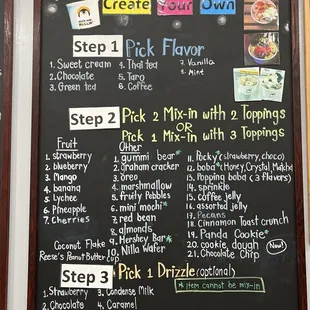 Create Your Own
Step 1 Pick Flavor
1. Sweet cream
2. Chocolate
3. Green tea
4. Thai tea
5. Taro
6. Coffee
7. Vanilla
8. Mint
Step 2 Pick 2 Mix-in with 2 Toppings
OR
Pick 1 Mix-in with 3 Toppings
Fruit
1. Strawberry
2. blueberry
3. Mango
4. banana
5. Lychee
6. Pineapple
7. Cherries
Coconut Flake
Reese's Peanut Butter cup
Other
1. gummi bear*
2. Graham cracker
3. oreo
4. marshmallow
5. fruity Pebbles
6. mini mochi*
7. red bean
8. almonds
9. Hershey Bar*
10. Nilla Wafer
11. Pocky*(strawberry, choco)
12. boba*(Honey, Crystal, Matcha)
13. Popping boba (3 flavors)
14. sprinkle
15. coffee jelly
16. assorted jelly
17. Pecans
18. Cinnamon Toast crunch
19. Panda Cookie*
20. cookie dough New!
21. Chocolate Chip
Step 3 Pick 1 Drizzle (optional)
* item cannot be mix-in
1. Strawberry
2. Chocolate
3. Condense Milk
4. Caramel